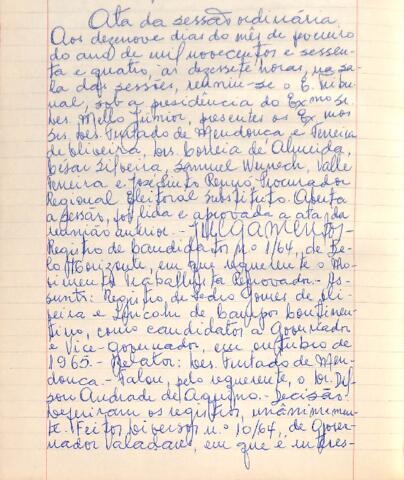 Ata da sessão ordinária
Aos dezenove dias do mês de fevereiro
do ano de mil novecentos e sessen-
ta e quatro, às dezessete horas, na sa-
la das sessões, reuniu-se o E. Tribu-
nal, sob a presidência do Exmo Sr.
Des. Mello Júnior, presentes os Exmos
Srs. Des. Furtado de Mendonca e Ferreira
de Oliveira, Drs. Correia de Almeida,
César Silveira, Samuel Werneck, Valle
Ferreira e José Pinto Renyó, Procurador
Regional Eleitoral Substituto. Aberta
a sessão, foi lida e aprovada a ata da
reunião anterior.- Julgamentos.-
Registro de Candidatos n.º 1/64, de Be-
lo Horizonte, em que é requerente o Mo-
vimento Trabalhista Renovador.- As-
sunto: Registro, de Pedro Gomes de Oli-
veira e de Campos
como candidatos a Governador
e Vice-Governador, em outubro de
1965.- Relator: Des. Furtado de Men-
donca.- Falou, pelo requerente, o Dr.
Andrade de Aquino.- Decisão:
Deferiram os registros, unânimemen-
te. Feitos Diversos n.º 10/64, de Gover-
nador Valadares, em que é interes-